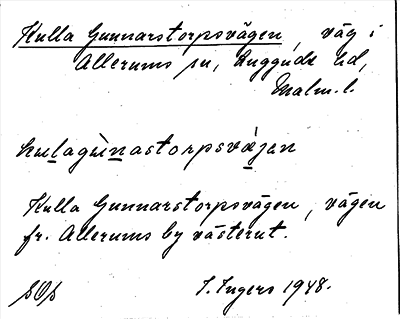 Kulla Gunnarstorpsvägen, väg i
Allerums sn, Luggude hd,
Malm. l.
kulagùnastorpsvæjen
Kulla Gunnarstorpsvägen, vägen
fr. Allerums by västerut.
I. Ingers 1948.